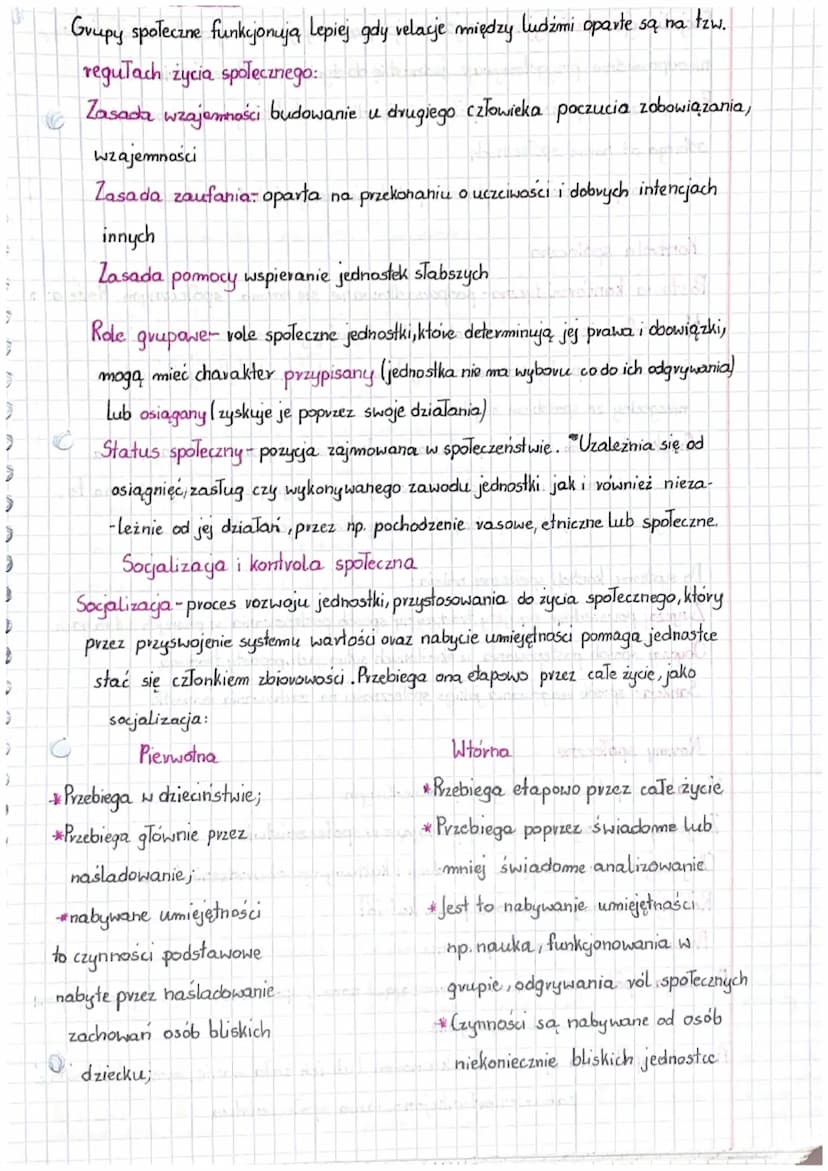 Grupy społeczne funkcjonują lepiej gdy relacje między ludźmi oparte są na tzw.
regułach życia społecznego:
Zasada wzajemności budowanie u drugiego człowieka poczucia zobowiązania,
wzajemności
Zasada zaufania- oparta na przekonaniu o uczciwości i dobrych intencjach
innych
Zasada pomocy wspieranie jednostek słabszych
Role grupowe- role społeczne jednostki, które determinują jej prawa i obowiązki,
mogą mieć charakter przypisany (jednostka nie ma wyboru co do ich odgrywania)
lub osiągany (zyskuje je poprzez swoje działania)
Status społeczny- pozycja zajmowana w społeczeństwie. *Uzależnia się od
osiągnięć, zasług czy wykonywanego zawodu jednostki jak i również nieza-
-leżnie od jej działań, przez np. pochodzenie rasowe, etniczne lub społeczne.
Socjalizacja i kontrola społeczna
Socjalizacja - proces rozwoju jednostki, przystosowania do życia społecznego, który
przez przyswojenie systemu wartości oraz nabycie umiejętności pomaga jednostce
stać się członkiem zbiorowości. Przebiega ona etapowo przez całe życie, jako
socjalizacja:
Pierwotna
*Przebiega w dzieciństwie;
*Przebiega głównie przez
naśladowanie;
*nabywane umiejętności
to czynności podstawowe
nabyte przez naśladowanie
zachowań osób bliskich
dziecku;
Wtórna
*Przebiega etapowo przez całe życie
*Przebiega poprzez świadome lub
mniej świadome analizowanie
*Jest to nabywanie umiejętności
np. nauka, funkcjonowania w
grupie, odgrywania ról społecznych
*Czynności są nabywane od osób
niekoniecznie bliskich jednostce